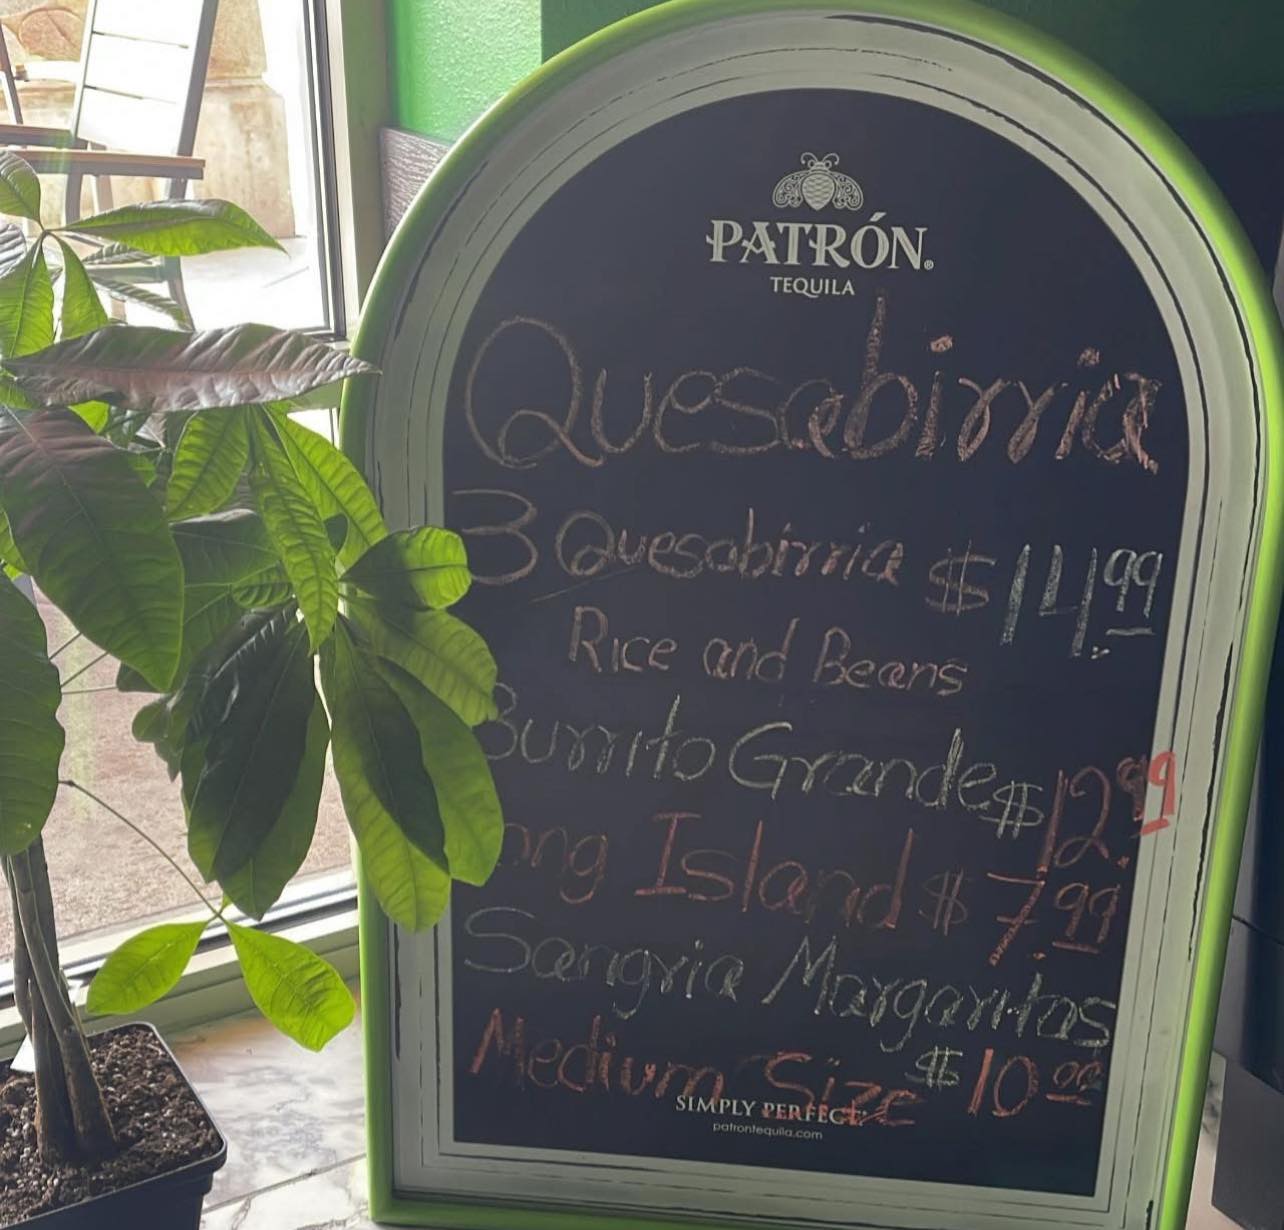 PATRÓN®
TEQUILA
Quesabirria
3 Quesabirria $14.99
Rice and Beans
Burrito Grande $12.99
ong Island $7.99
Sangria Margaritas
Medium Size $10.00
SIMPLY PERFECT.
patrontequila.com